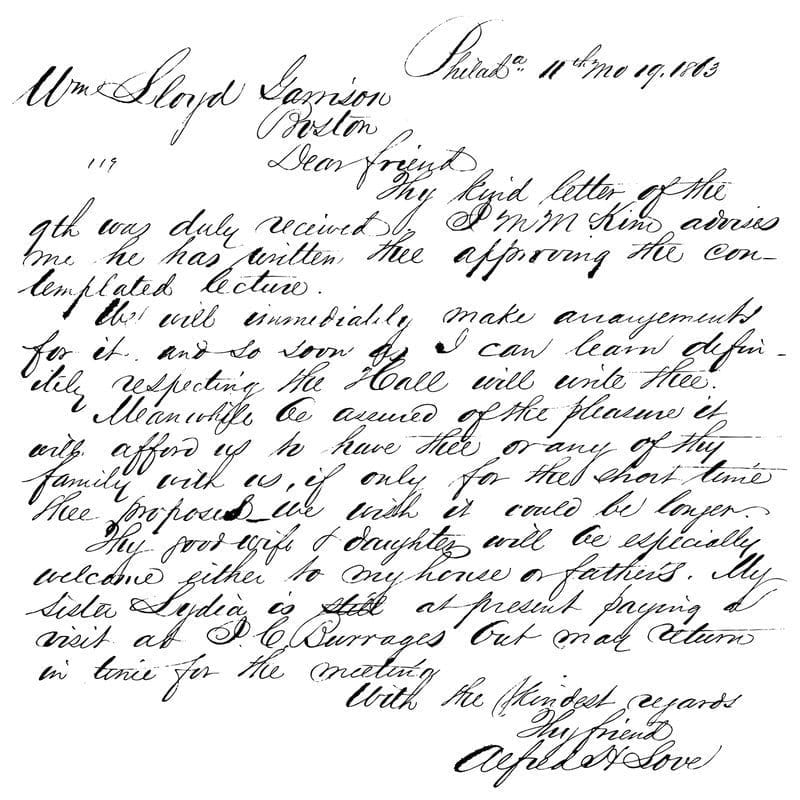 Philada. 11th Mo 19. 1863
Wm Lloyd Garrison
Boston
119
Dear friend
Thy kind letter of the
9th was duly received, J M McKim advises
me he has written thee approving the con-
templated lecture.
We will immediately make arrangements
for it. and so soon as I can learn defin-
itely respecting the Hall will write thee.
Meanwhile be assured of the pleasure it
will afford us to have thee or any of thy
family with us, if only for the short time
thee proposes_we wish it could be longer.
Thy good wife & daughter will be especially
welcome either to my house or father's. My
sister Lydia is still at present paying a
visit at J. C. Burrages but may return
in time for the meeting
With the kindest regards
Thy friend
Alfred H Love